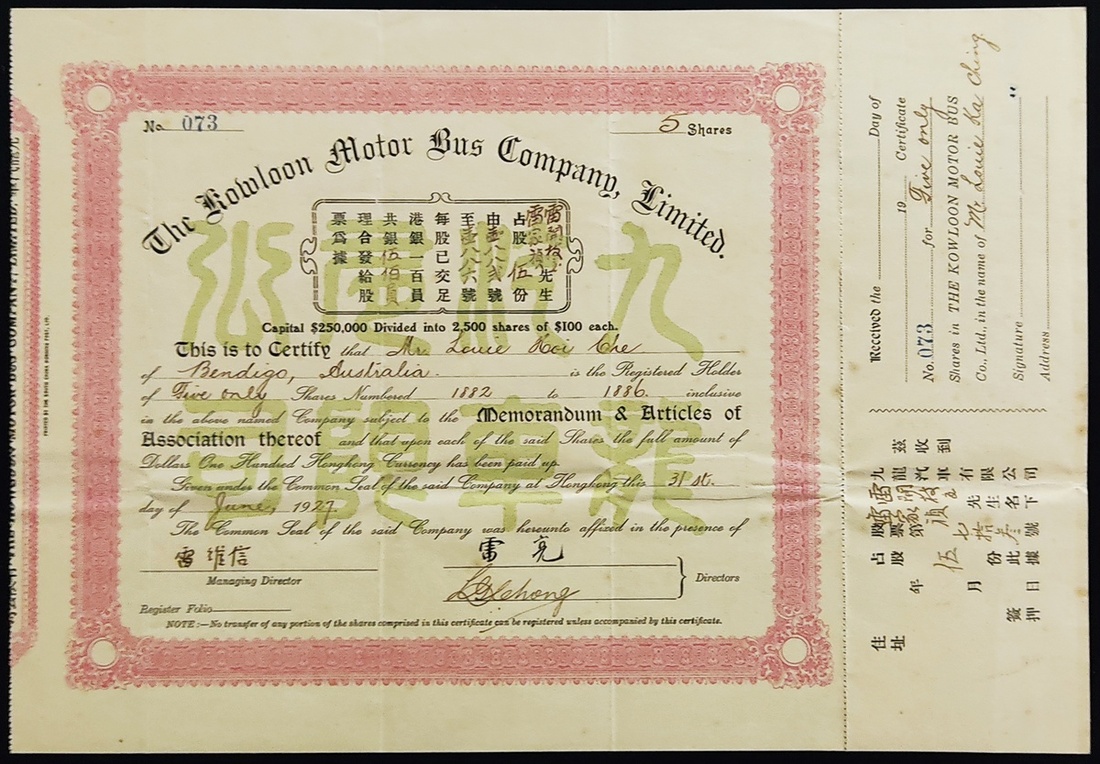 No. 073
5 Shares
The Kowloon Motor Bus Company, Limited.
先生
占股伍份
由壹八八弍號
至壹八八六號
每股已交足
港銀一百員
共銀伍佰員
理合發給股
票爲據
九龍汽車有限公司
Capital $250,000 Divided into 2,500 shares of $100 each.
This is to Certify that Mr. Louie Hoi Che
of Bendigo, Australia. is the Registered Holder
of Five only Shares Numbered 1882 to 1886. inclusive
in the above named Company subject to the Memorandum & Articles of
Association thereof and that upon each of the said Shares the full amount of
Dollars One Hundred Hongkong Currency has been paid up.
Given under the Common Seal of the said Company at Hongkong this 31st.
day of June, 1927.
The Common Seal of the said Company was hereunto affixed in the presence of
雷維信
雷亮
Managing Director
Directors
Register Folio
NOTE :—No transfer of any portion of the shares comprised in this certificate can be registered unless accompanied by this certificate.
Received the Day of
19 Certificate
No. 073 for Five only
Shares in THE KOWLOON MOTOR BUS
Co., Ltd., in the name of Mr. Louie Ka Ching.
Signature "
Address
茲收到
九龍汽車有限公司
先生名下
占股伍份此據
股票第七拾叁號
年月日
簽押
住址